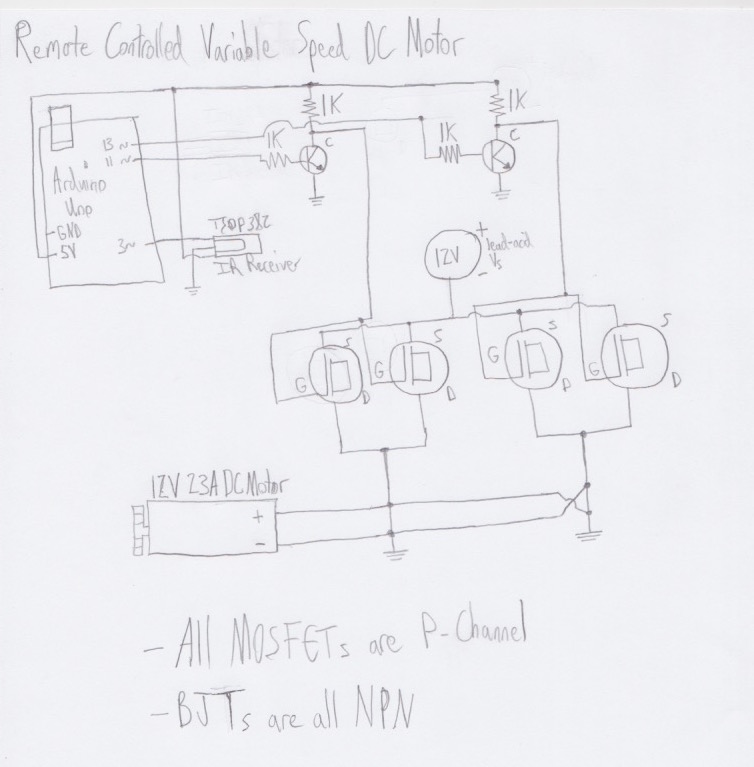 Remote Controlled Variable Speed DC Motor
1K
1K
13 ~
11 ~
1K
C
1K
C
Arduino
Uno
GND
5V
3~
IR Receiver
12V
+
-
lead-acid
Vs
S
S
S
S
G
G
G
G
D
D
D
D
12V 23A DC Motor
+
-
- All MOSFETs are P-Channel
- BJTs are all NPN